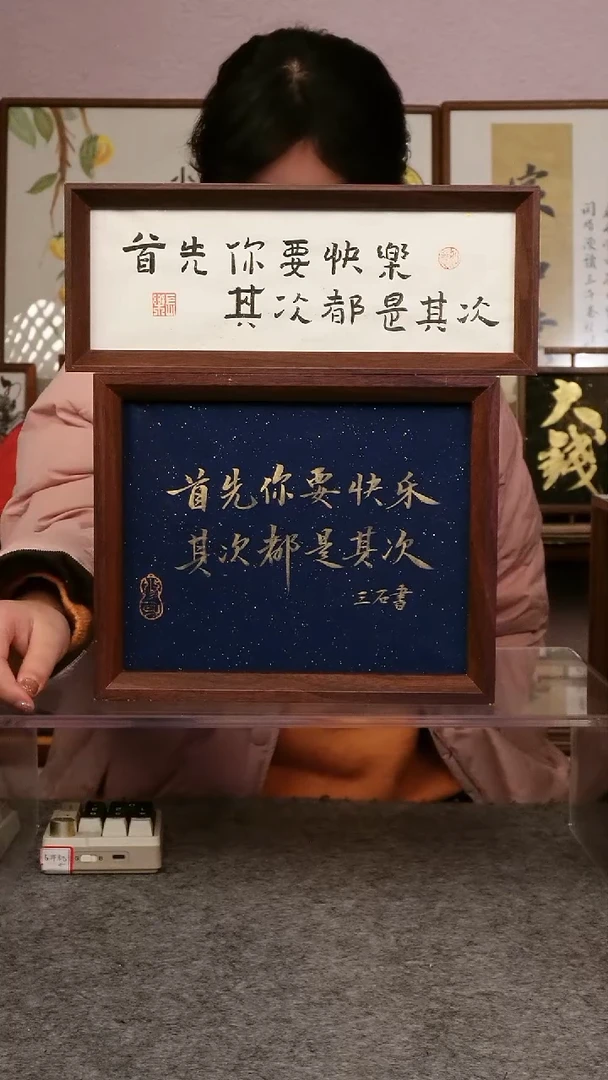 首先你要快樂
其次都是其次
首先你要快乐
其次都是其次
三石書
大錢